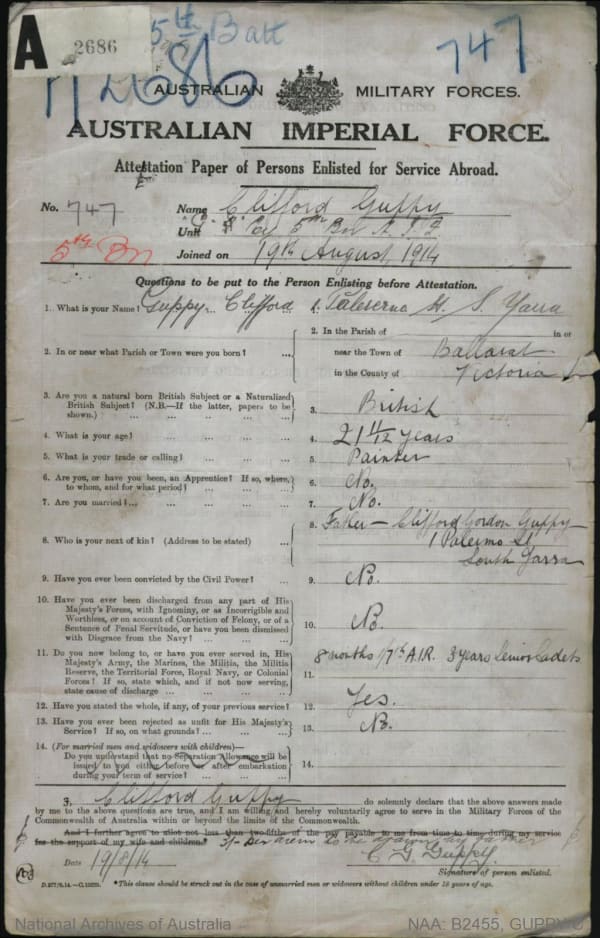 A
2686
5th Batt
747
112686
AUSTRALIAN MILITARY FORCES.
AUSTRALIAN IMPERIAL FORCE.
Attestation Paper of Persons Enlisted for Service Abroad.
No. 747
Name Clifford Guppy
5th Bn
Unit 5th Bn A.I.F
Joined on 19th August 1914
Questions to be put to the Person Enlisting before Attestation.
1. What is your Name? Guppy Clifford 1.
2. In or near what Parish or Town were you born? ...
2. In the Parish of in or
near the Town of Ballarat
in the County of Victoria
3. Are you a natural born British Subject or a Naturalized
British Subject? (N.B.—If the latter, papers to be
shown.) ... ... ... ... ...
3. British
4. What is your age? ... ... ... ... 4. 21 11/12 years
5. What is your trade or calling? ... ... ... 5. Painter
6. Are you, or have you been, an Apprentice? If so, where,
to whom, and for what period? ... ... ...
6. No.
7. Are you married? ... ... ... ... ... 7. No.
8. Who is your next of kin? (Address to be stated) ...
8. Father — Clifford Gordon Guppy
1 Palermo St
South Yarra
9. Have you ever been convicted by the Civil Power? ... 9. No.
10. Have you ever been discharged from any part of His
Majesty's Forces, with Ignominy, or as Incorrigible and
Worthless, or on account of Conviction of Felony, or of a
Sentence of Penal Servitude, or have you been dismissed
with Disgrace from the Navy? ... ... ...
10. No.
11. Do you now belong to, or have you ever served in, His
Majesty's Army, the Marines, the Militia, the Militia
Reserve, the Territorial Force, Royal Navy, or Colonial
Forces? If so, state which, and if not now serving,
state cause of discharge ... ... ... ...
11. 8 months 1/7th A.I.R. 3 years Senior Cadets
12. Have you stated the whole, if any, of your previous service? 12. Yes.
13. Have you ever been rejected as unfit for His Majesty's
Service? If so, on what grounds? ... ... ...
13. No.
14. (For married men and widowers with children)—
Do you understand that no Separation Allowance will be
issued to you either before or after embarkation
during your term of service? ... ... ...
14.
I, Clifford Guppy do solemnly declare that the above answers made
by me to the above questions are true, and I am willing and hereby voluntarily agree to serve in the Military Forces of the
Commonwealth of Australia within or beyond the limits of the Commonwealth.
And I further agree to allot not less than two-fifths of the pay payable to me from time to time during my service
for the support of my wife and children.* 3/- per diem to the my father
Date 19/8/14
C G Guppy
Signature of person enlisted.
*This clause should be struck out in the case of unmarried men or widowers without children under 18 years of age.
National Archives of Australia
NAA: B2455, GUPPY C